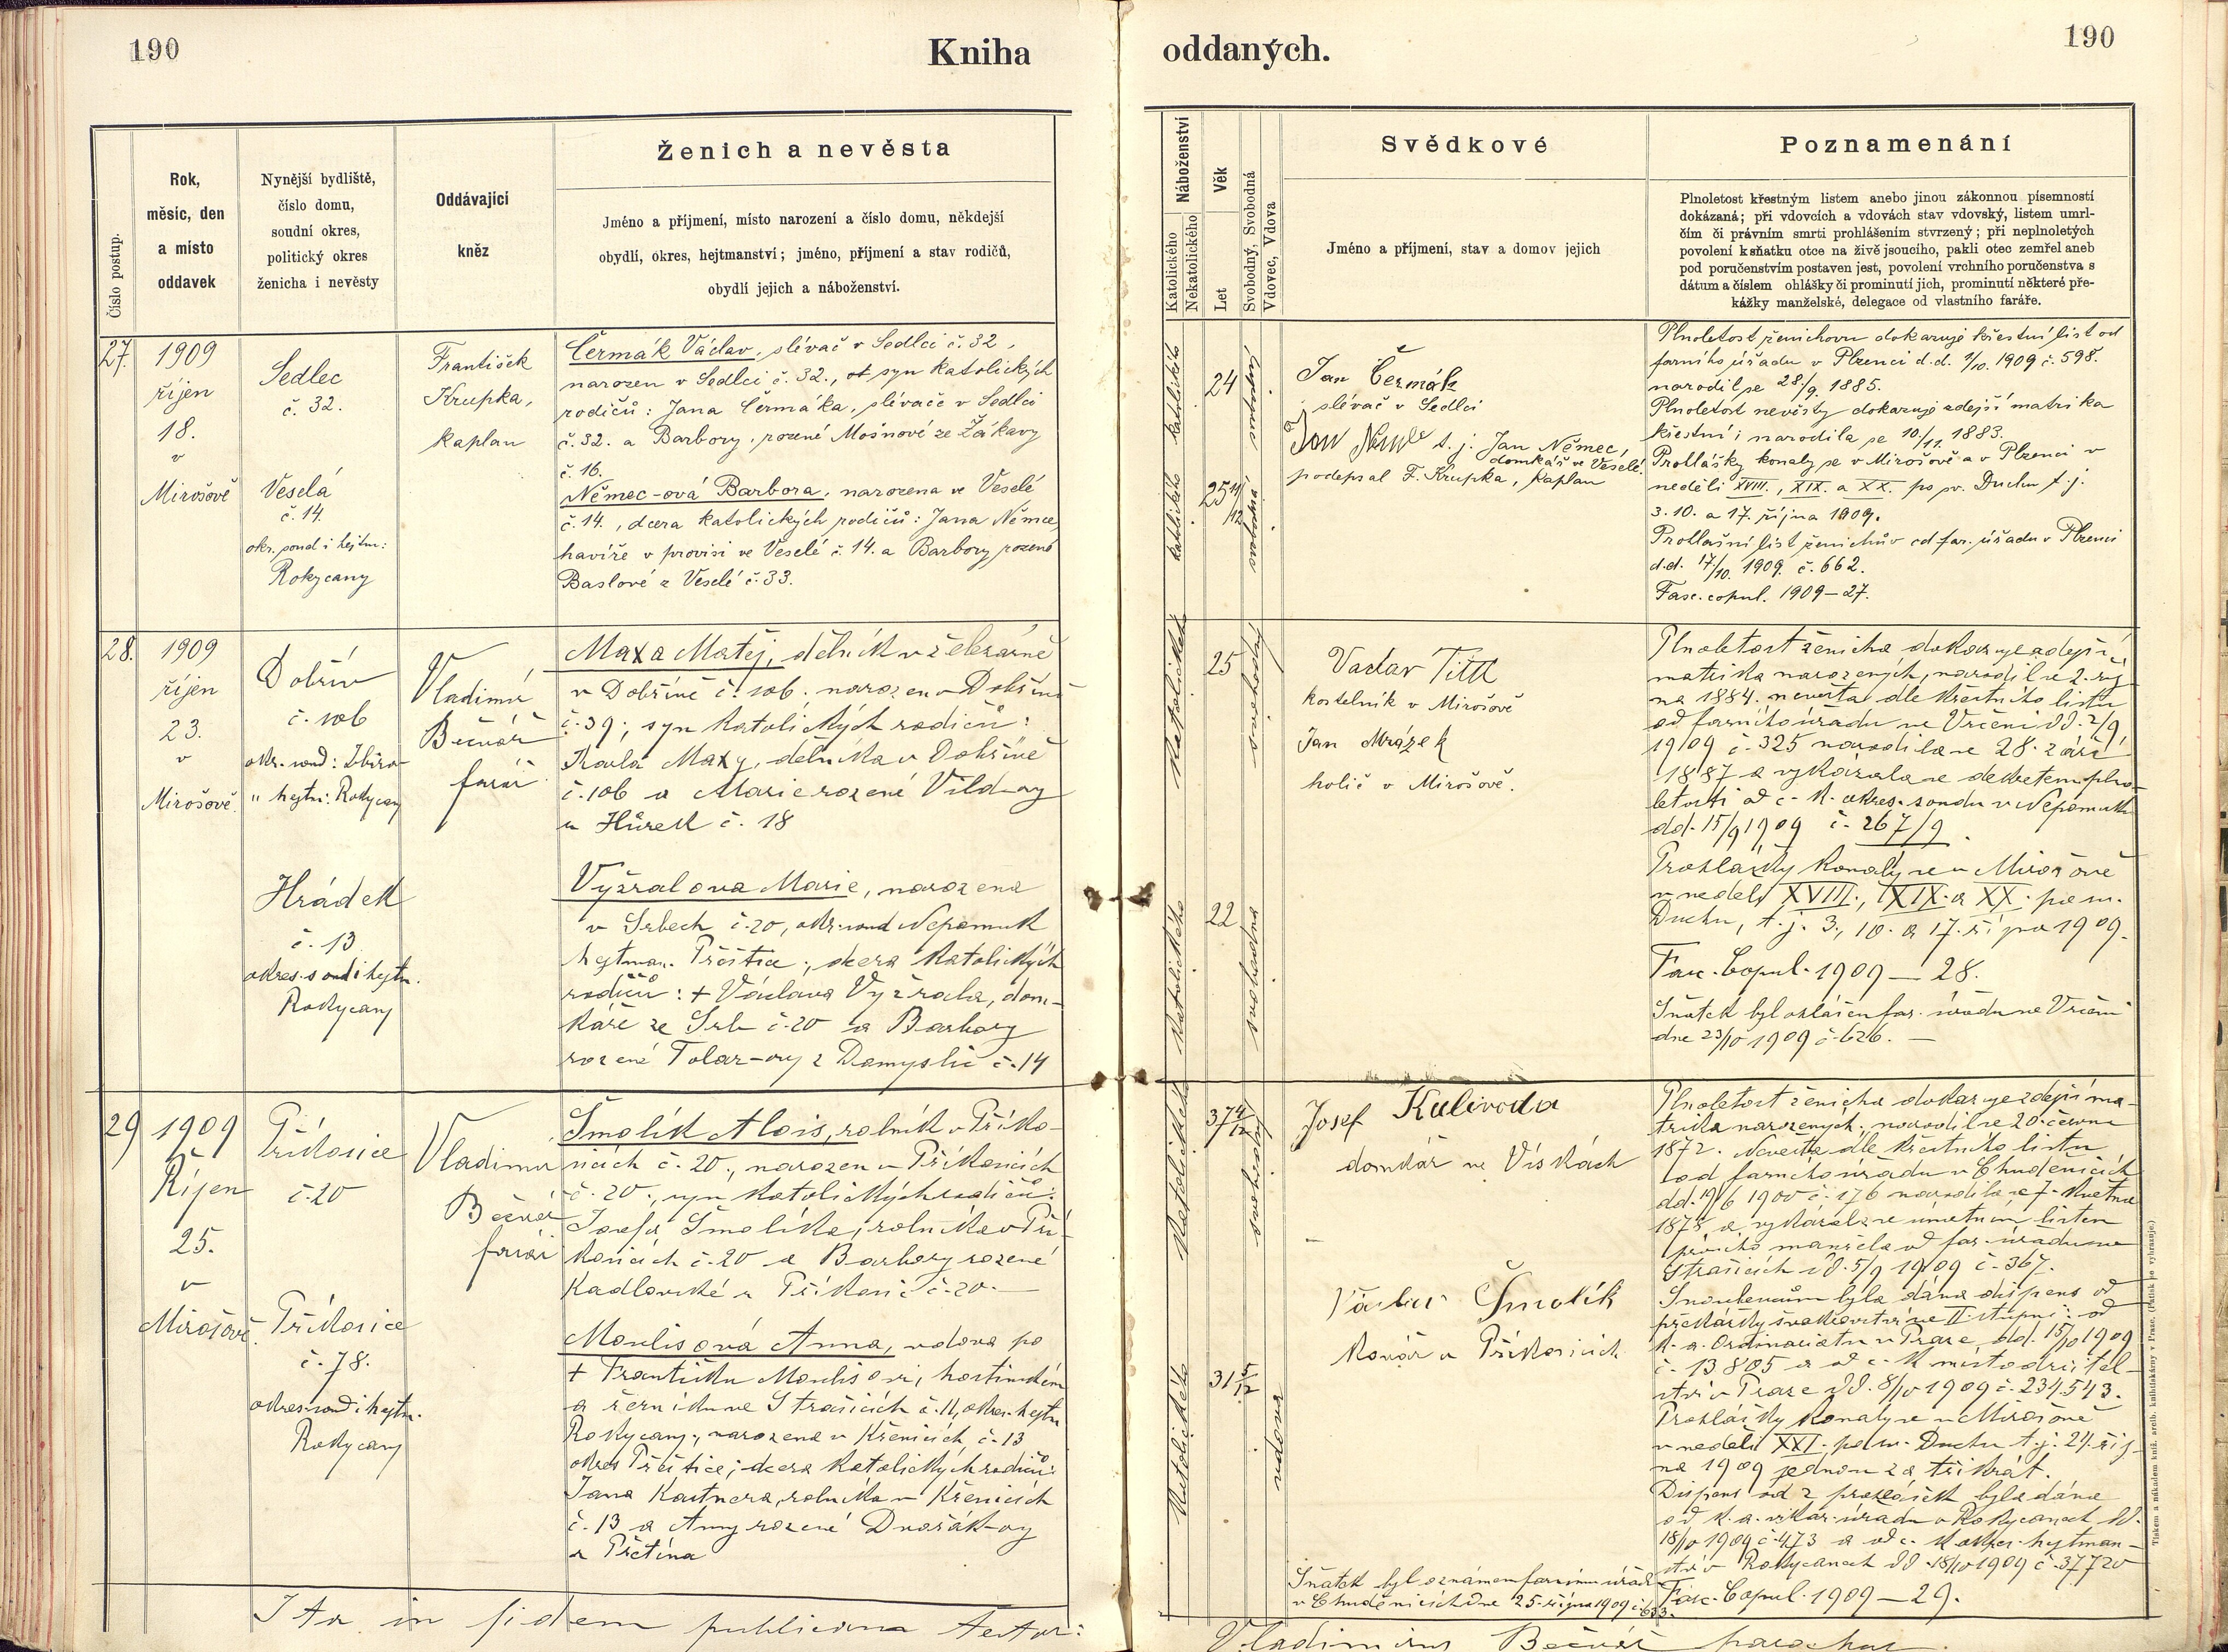 190
Kniha
oddaných.
190
Číslo postup.
Rok,
měsíc, den
a místo
oddavek
Nynější bydliště,
číslo domu,
soudní okres,
politický okres
ženicha i nevěsty
Oddávající
kněz
Ženich a nevěsta
Jméno a příjmení, místo narození a číslo domu, někdejší
obydlí, okres, hejtmanství; jméno, příjmení a stav rodičů,
obydlí jejich a náboženství.
Náboženství
Katolického
Nekatolického
Věk
Let
Svobodný, Svobodná
Vdovec, Vdova
Svědkové
Jméno a příjmení, stav a domov jejich
Poznamenání
Plnoletost křestným listem anebo jinou zákonnou písemností
dokázaná; při vdovcích a vdovách stav vdovský, listem umrl-
čím či právním smrti prohlášením stvrzený; při neplnoletých
povolení k sňatku otce na živě jsoucího, pakli otec zemřel aneb
pod poručenstvím postaven jest, povolení vrchního poručenstva s
dátum a číslem ohlášky či prominutí jich, prominutí některé pře-
kážky manželské, delegace od vlastního faráře.
27.
1909
říjen
18.
v
Mirošově
Sedlec
č. 32.
Veselá
č. 14.
okr. soud i hejtm:
Rokycany
František
Krupka,
kaplan
Čermák Václav, slévač v Sedlci č. 32,
narozen v Sedlci č. 32., syn katolických
rodičů: Jana Čermáka, slévače v Sedlci
č. 32. a Barbory, rozené Mošnové ze Žákavy
č. 16.
Němec-ová Barbora, narozena ve Veselé
č. 14., dcera katolických rodičů: Jana Němce,
havíře v provisi ve Veselé č. 14. a Barbory rozené
Baslové z Veselé č. 33.
katolického
katolického
24
25 11/12
svobodný
svobodná
Jan Čermák
slévač v Sedlci
Jan Němec t. j. Jan Němec,
domkář ve Veselé.
podepsal F. Krupka, kaplan
Plnoletost ženichovu dokazuje křestní list od
farního úřadu v Plzenci d.d. 1/10. 1909 č. 598.
narodil se 28./9. 1885.
Plnoletost nevěsty dokazuje zdejší matrika
křestní; narodila se 10./11. 1883.
Prohlášky konaly se v Mirošově a v Plzenci v
neděli XVIII., XIX. a XX. po sv. Duchu t. j.
3. 10. a 17. října 1909.
Prohlašní list ženichův od far. úřadu v Plzenci
d.d. 17/10. 1909. č. 662.
Fasc. copul. 1909–27.
28.
1909
říjen
23.
v
Mirošově
Dobřív
č. 106
okr. soud: Zbiro-
" hejtm: Rokycany
Hrádek
č. 13
okres. soud i hejtm.
Rokycany
Vladimír
Bečvář
farář
Maxa Matěj, dělník v železárně
v Dobřívě č. 106. narozen v Dobřívě
č. 39; syn katolických rodičů:
Karla Maxy, dělníka v Dobřívě
č. 106 a Marie rozené Vild-ovy
z Hůrek č. 18
Vyžralova Marie, narozena
v Srbech č. 20, okr. soud Nepomuk
hejtman. Přeštice; dcera katolických
rodičů: + Václava Vyžrala, dom-
káře ze Srb č. 20 a Barbory
rozené Tolar-ovy z Domyslic č. 14
katolického
katolického
25
22
svobodný
svobodná
Vaclav Tittl
kostelník v Mirošově
Jan Mrázek
holič v Mirošově.
Plnoletost ženicha dokazuje zdejší
matrika narozených, narodil se 2. říj-
na 1884. nevěsta dle křestního listu
od farního úřadu ve Vrčeni dd. 2/9
1909 č. 325 narodila se 28. září
1887 a vykázala se dekretem plno-
letosti od c. k. okres. soudu v Nepomuku
dd. 15/9 1909 č. 267/9.
Prohlášky konaly se v Mirošově
v neděli XVIII., XIX. a XX. po sv.
Duchu, t. j. 3., 10. a 17. října 1909.
Fasc. Copul. 1909 — 28.
Sňatek byl ohlášen far. úřadu ve Vrčeni
dne 23/10 1909 č. 626. —
29
1909
Říjen
25.
v
Mirošově.
Příkosice
č. 20
Příkosice
č. 78.
okres. soud i hejtm.
Rokycany
Vladimír
Bečvář
farář
Šmolík Alois, rolník v Příko-
sicích č. 20., narozen v Příkosicích
č. 20., syn katolických rodičů:
Josefa Šmolíka, rolníka v Pří-
kosicích č. 20 a Barbory rozené
Kadlovské z Příkosic č. 20. —
Moulisová Anna, vdova po
+ Františku Moulisovi, hostinském
a řezníku ve Strašicích č. 11, okres. hejtm.
Rokycany; narozena v Křenicích č. 13
okres Přeštice; dcera katolických rodičů:
Jana Kastnera, rolníka v Křenicích
č. 13 a Anny rozené Dvořák-ovy
z Přetína
katolického
katolického
37 4/12
31 5/12
svobodný
vdova
Josef Kulivoda
domkář ve Vískách
Václav Šmolík
kovář v Příkosicích
Plnoletost ženicha dokazuje zdejší ma-
trika narozených; narodil se 20. června
1872. Nevěsta dle křestního listu
od farního úřadu v Chudenicích
dd. 19/6 1900 č. 176 narodila se 7. května
1878 a vykázala se úmrtním listem
prvního manžela od far. úřadu ve
Strašicích dd. 5/9 1909 č. 367.
Snoubencům byla dána dispens od
překážky švakrovství ve II. stupni: od
k. a. Ordinariatu v Praze, dd. 15/10 1909
č. 13805 a od c. k. místodržitel-
ství v Praze dd. 8/10 1909 č. 234.543.
Prohlášky konaly se v Mirošově
v neděli XXI. po sv. Duchu t. j. 24. říj-
na 1909 jednou za třikrát.
Dispens od 2 prohlášek byla dána
od k. a. vikar. úřadu v Rokycanech dd.
18/10 1909 č. 473 a od c. k. okres. hejtman-
ství v Rokycanech dd. 18/10 1909 č. 37720
Fasc. Copul. 1909 — 29.
Sňatek byl oznámen farnímu úřadu
v Chudenicích dne 25. října 1909 č. 633.
Ita in fidem publicam testor:
Vladimirus Bečvář parochus.
Tiskem a nákladem kníž. arcib. knihtiskárny v Praze. (Patisk se vyhrazuje.)